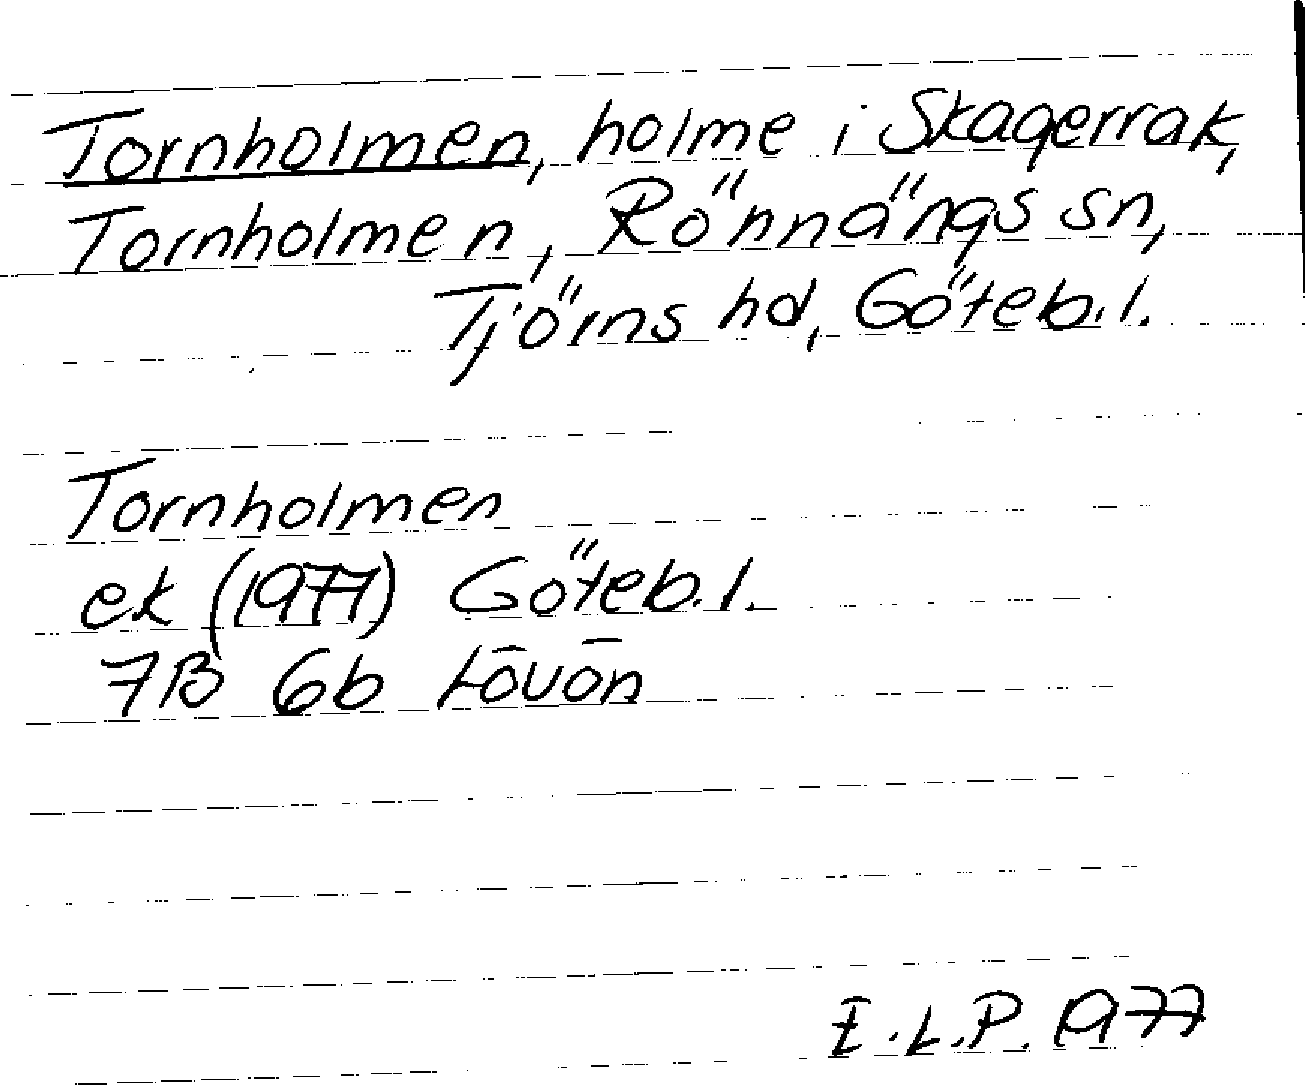 Tornholmen, holme i Skagerrak,
Tornholmen, Rönnängs sn,
Tjörns hd, Göteb.l.
Tornholmen
ek (1977) Göteb.l.
7B 6b Lövön
E.L.P. 1977